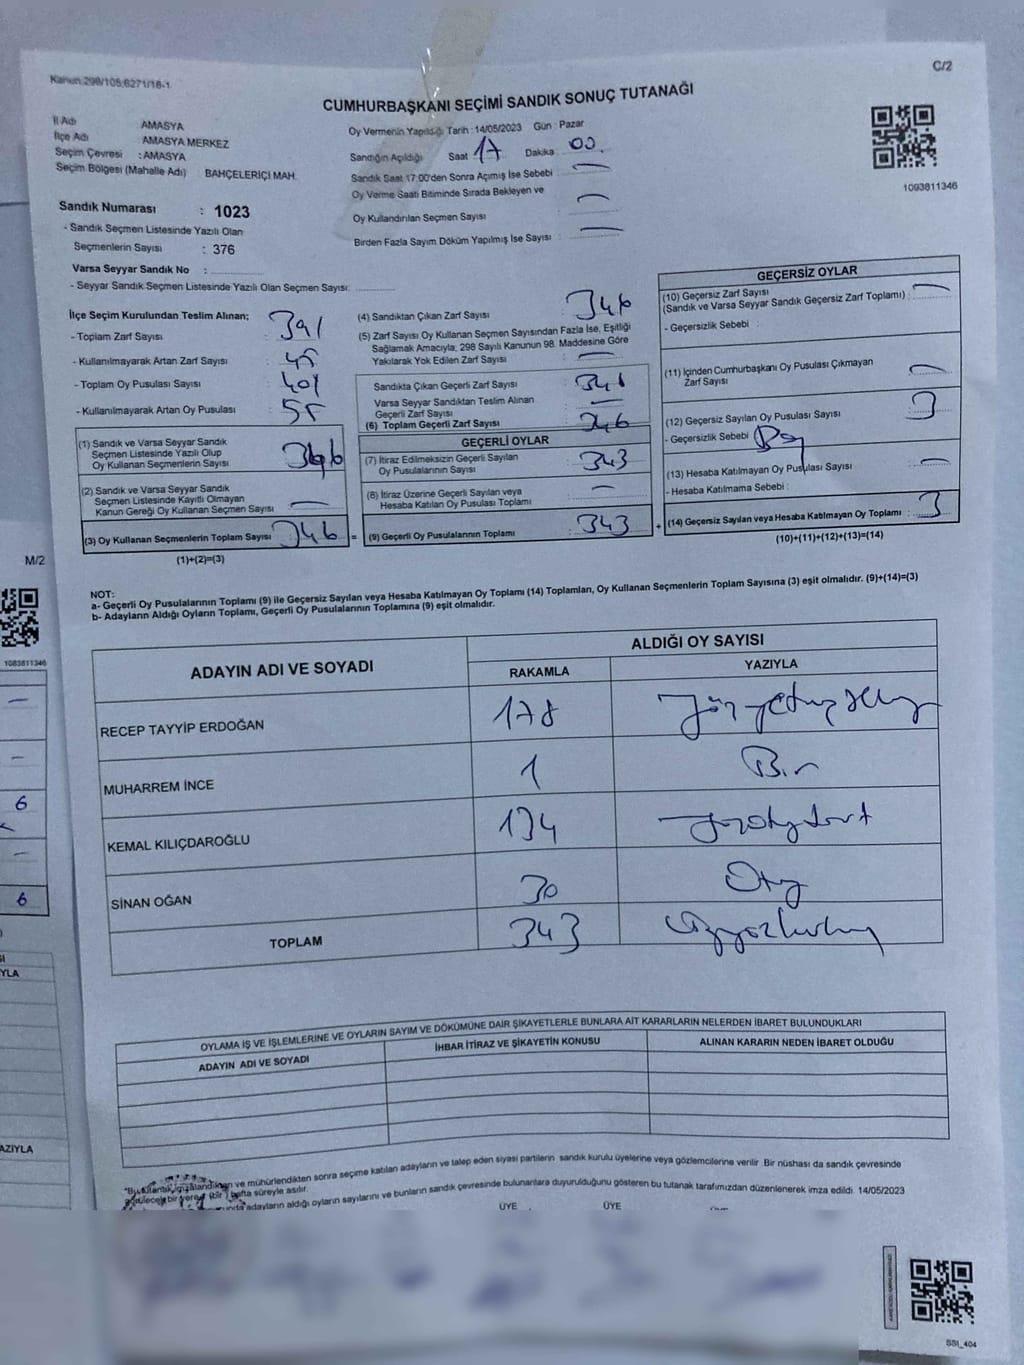 Kanun:298/105;6271/18-1
C/2
CUMHURBAŞKANI SEÇİMİ SANDIK SONUÇ TUTANAĞI
İl Adı AMASYA
İlçe Adı AMASYA MERKEZ
Seçim Çevresi : AMASYA
Seçim Bölgesi (Mahalle Adı) BAHÇELERİÇİ MAH.
Oy Vermenin Yapıldığı Tarih : 14/05/2023 Gün : Pazar
Sandığın Açıldığı Saat 17 Dakika 00.
Sandık Saat 17:00'den Sonra Açımış İse Sebebi —
Oy Verme Saati Bitiminde Sırada Bekleyen ve
Oy Kullandırılan Seçmen Sayısı —
Birden Fazla Sayım Döküm Yapılmış İse Sayısı —
1093811346
Sandık Numarası : 1023
- Sandık Seçmen Listesinde Yazılı Olan
Seçmenlerin Sayısı : 376
Varsa Seyyar Sandık No :
- Seyyar Sandık Seçmen Listesinde Yazılı Olan Seçmen Sayısı:
İlçe Seçim Kurulundan Teslim Alınan;
- Toplam Zarf Sayısı : 391
- Kullanılmayarak Artan Zarf Sayısı : 45
- Toplam Oy Pusulası Sayısı : 401
- Kullanılmayarak Artan Oy Pusulası : 55
(1) Sandık ve Varsa Seyyar Sandık
Seçmen Listesinde Yazılı Olup
Oy Kullanan Seçmenlerin Sayısı : 346
(2) Sandık ve Varsa Seyyar Sandık
Seçmen Listesinde Kayıtlı Olmayan
Kanun Gereği Oy Kullanan Seçmen Sayısı —
(3) Oy Kullanan Seçmenlerin Toplam Sayısı 346 =
(1)+(2)=(3)
(4) Sandıktan Çıkan Zarf Sayısı : 346
(5) Zarf Sayısı Oy Kullanan Seçmen Sayısından Fazla İse, Eşitliği
Sağlamak Amacıyla, 298 Sayılı Kanunun 98. Maddesine Göre
Yakılarak Yok Edilen Zarf Sayısı : —
Sandıkta Çıkan Geçerli Zarf Sayısı : 346
Varsa Seyyar Sandıktan Teslim Alınan
Geçerli Zarf Sayısı : —
(6) Toplam Geçerli Zarf Sayısı : 346
GEÇERLİ OYLAR
(7) İtiraz Edilmeksizin Geçerli Sayılan
Oy Pusulalarının Sayısı : 343
(8) İtiraz Üzerine Geçerli Sayılan veya
Hesaba Katılan Oy Pusulası Toplamı : —
(9) Geçerli Oy Pusulalarının Toplamı : 343 +
GEÇERSİZ OYLAR
(10) Geçersiz Zarf Sayısı
(Sandık ve Varsa Seyyar Sandık Geçersiz Zarf Toplamı) : —
- Geçersizlik Sebebi :
(11) İçinden Cumhurbaşkanı Oy Pusulası Çıkmayan
Zarf Sayısı : —
(12) Geçersiz Sayılan Oy Pusulası Sayısı : 3
- Geçersizlik Sebebi :
(13) Hesaba Katılmayan Oy Pusulası Sayısı : —
- Hesaba Katılmama Sebebi :
(14) Geçersiz Sayılan veya Hesaba Katılmayan Oy Toplamı : 3
(10)+(11)+(12)+(13)=(14)
NOT:
a- Geçerli Oy Pusulalarının Toplamı (9) ile Geçersiz Sayılan veya Hesaba Katılmayan Oy Toplamı (14) Toplamları, Oy Kullanan Seçmenlerin Toplam Sayısına (3) eşit olmalıdır. (9)+(14)=(3)
b- Adayların Aldığı Oyların Toplamı, Geçerli Oy Pusulalarının Toplamına (9) eşit olmalıdır.
ADAYIN ADI VE SOYADI ALDIĞI OY SAYISI
RAKAMLA YAZIYLA
RECEP TAYYİP ERDOĞAN 178
MUHARREM İNCE 1 Bir
KEMAL KILIÇDAROĞLU 134
SİNAN OĞAN 30 Otuz
TOPLAM 343
OYLAMA İŞ VE İŞLEMLERİNE VE OYLARIN SAYIM VE DÖKÜMÜNE DAİR ŞİKAYETLERLE BUNLARA AİT KARARLARIN NELERDEN İBARET BULUNDUKLARI
ADAYIN ADI VE SOYADI İHBAR İTİRAZ VE ŞİKAYETİN KONUSU ALINAN KARARIN NEDEN İBARET OLDUĞU
ve mühürlendikten sonra seçime katılan adayların ve talep eden siyasi partilerin sandık kurulu üyelerine veya gözlemcilerine verilir. Bir nüshası da sandık çevresinde
(bir) hafta süreyle asılır.
adayların aldığı oyların sayılarını ve bunların sandık çevresinde bulunanlara duyurulduğunu gösteren bu tutanak tarafımızdan düzenlenerek imza edildi. 14/05/2023
ÜYE ÜYE
SSI_404
M/2
1083811346
—
—
6
—
6
YLA
AZIYLA